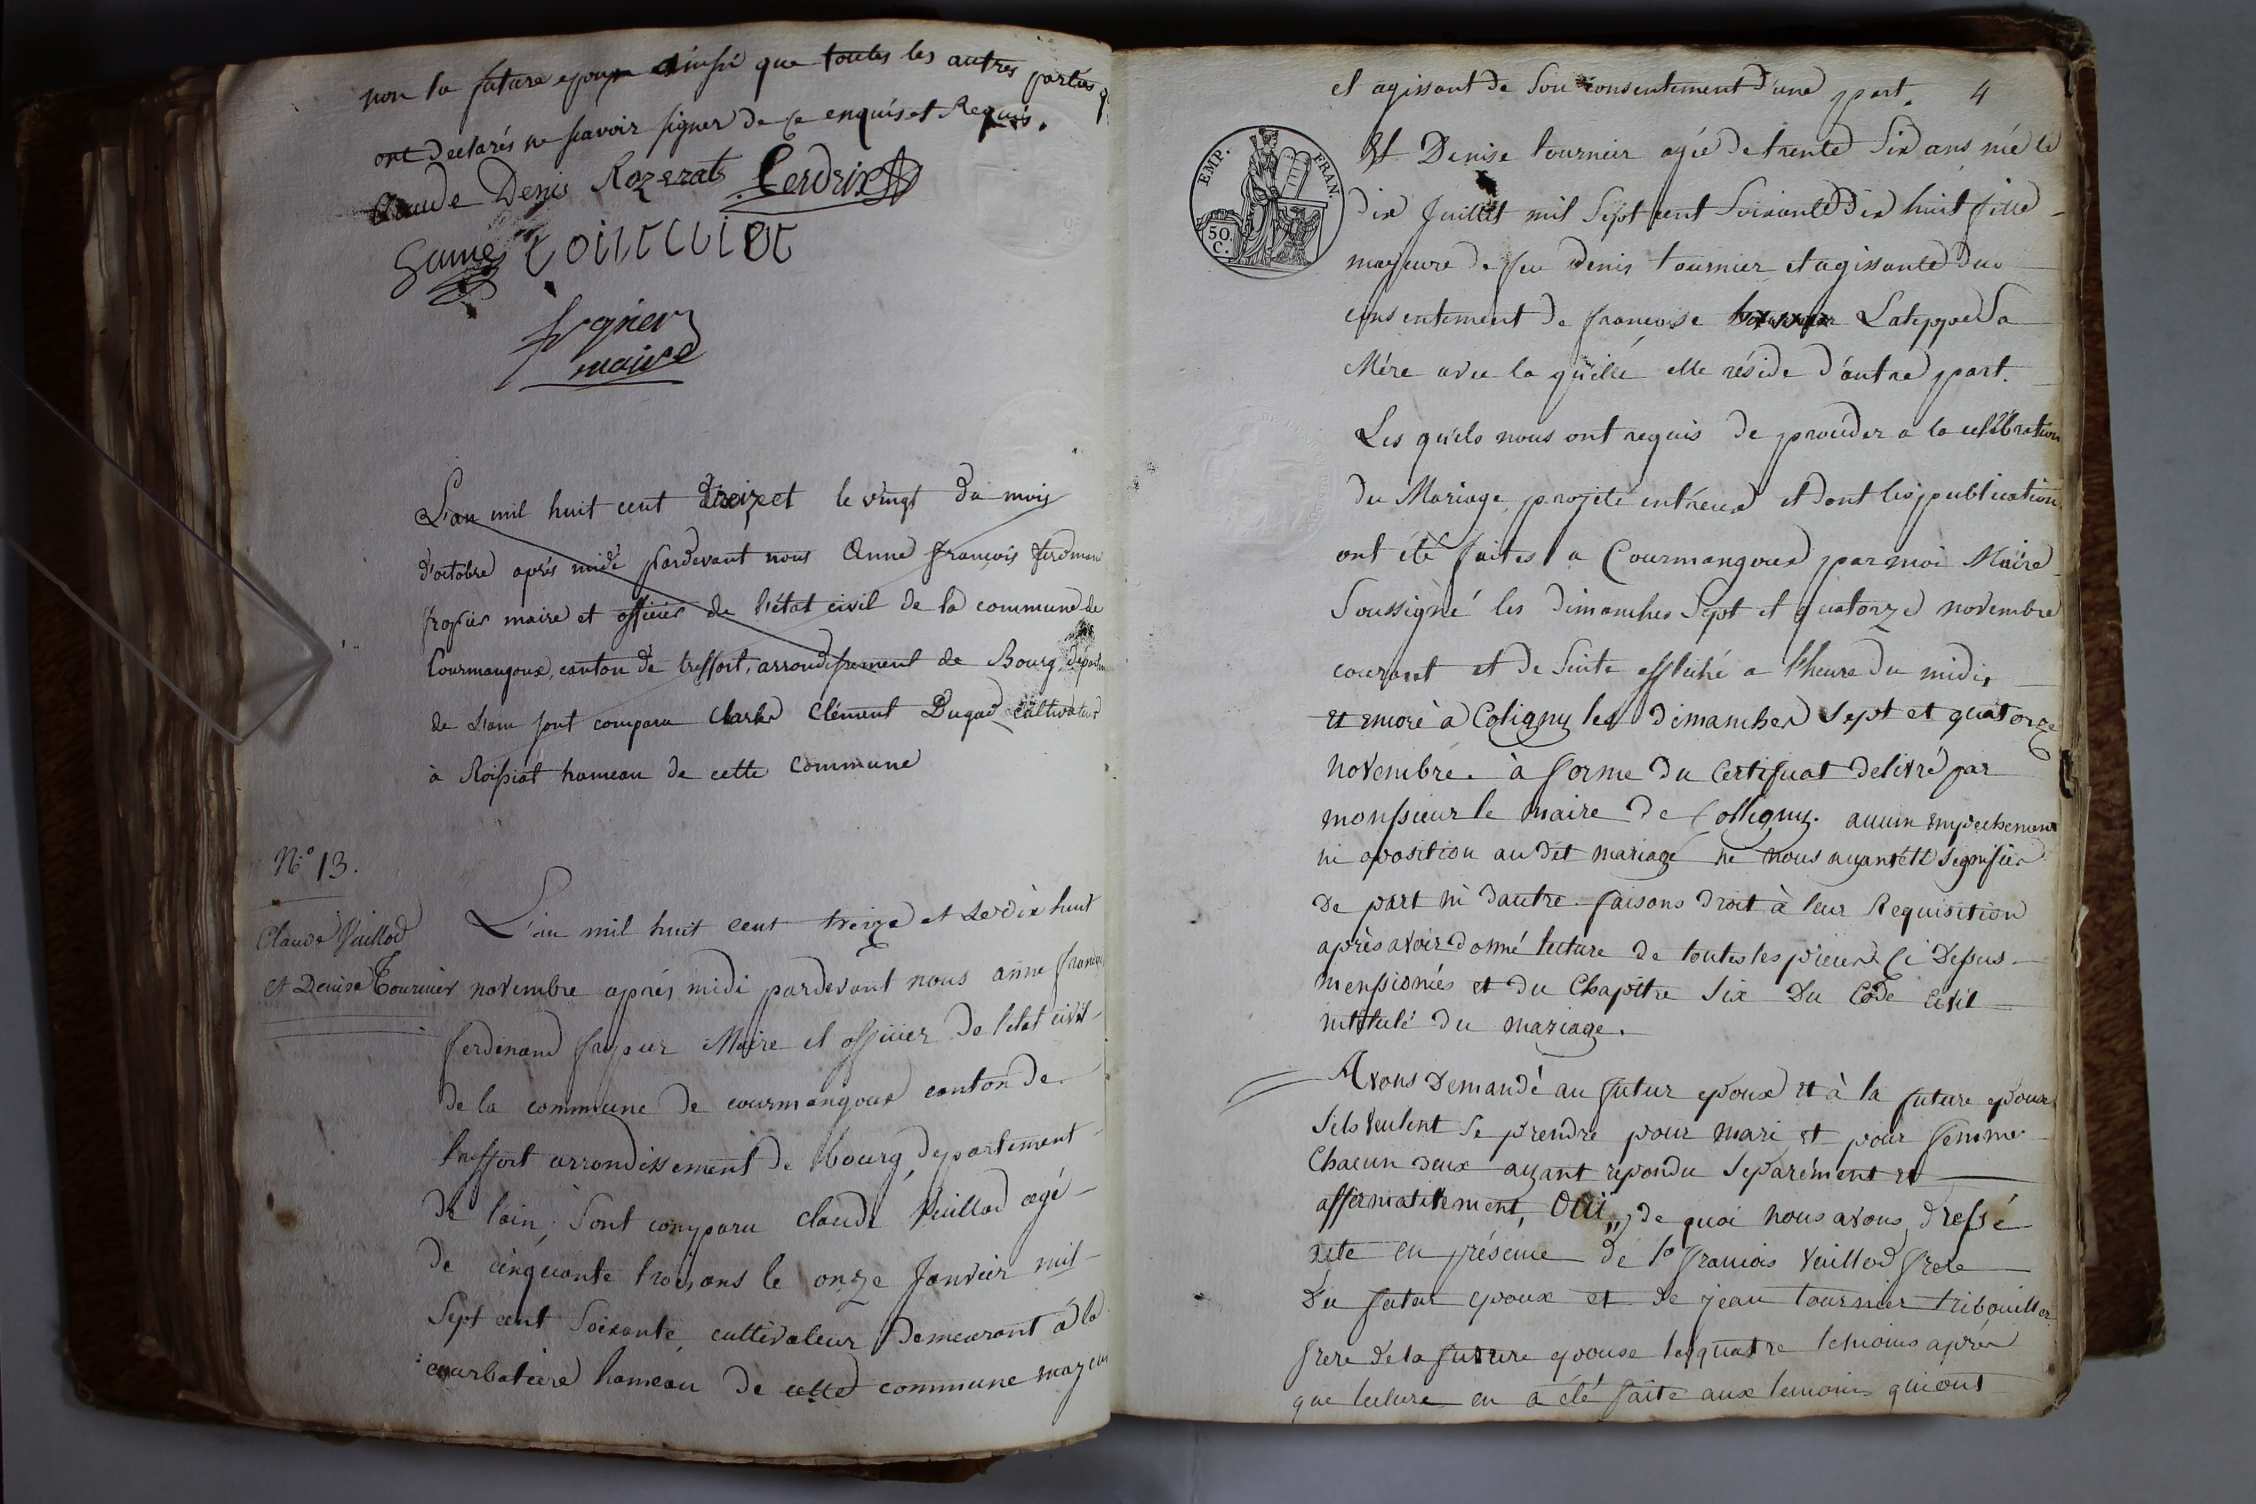 non la future epouse ainsi que toutes les autres parties
ont declarés ne scavoir signer de ce enquis et Requis.
Claude Denis Rozerat Perdrix
Game
maire
L'an mil huit cent treize et le vingt du mois
d'octobre aprés midi pardevant nous Anne françois ferdinan
maire et officier de l'état civil de la commune de
Courmangoux, canton de treffort, arrondissement de Bourg, départem
de L'ain sont comparu Clément Dugad cultivateur
à Roissiat hameau de cette commune
N.° 13.
Claude Vuillod
et Denise Tournier
L'an mil huit cent treize et le dix huit
novembre aprés midi pardevant nous anne françois
ferdinand Maire et officier de l'etat civil
de la commune de courmangoux canton de
treffort arrondissement de bourg, departement
de lain, sont comparu claude Vuillod agé
de cinquante trois ans le onze Janvier mil
sept cent soixante, cultivateur demeurant à la
courbatiere hameau de cette commune majeur
et agissant de son consentement d'une part. 4
EMP. FRAN.
50 C.
Et Denise tournier agée de trente six ans née le
dix Juillet mil sept cent soixante dix huit fille
majeure de feu Denis tournier et agissante du
consentement de francoise Lateppe sa
Mére avec la quelle elle réside d'autre part.
Les quels nous ont requis de proceder a la célébration
du Mariage projeté entreux et dont les publication
ont été faites a Courmangoux par moi Maire
Soussigné les dimanches Sept et quatorze novembre
courant et de suite affiché a l'heure du midi,
et encore à Coligny les dimanches sept et quatorze
novembre. à forme du certificat delivré par
monssieur le maire de Colligny. aucun empechement
ni oposition au dit mariage ne nous ayant été signifier
de part ni dautre. faisons droit à leur Requisition
après avoir donné lecture de toutes les pieces ci dessus
menssionnés et du chapitre six du Code civil
intitulé du mariage.
Avons demandé au futur epoux et à la future epouse
sils veulent se prendre pour mari et pour femme
chacun deux ayant repondu separément et
affirmativement, OUI,, de quoi nous avons dressé
acte en présence de 1° francois Vuillod frere
du futur epoux et de jean tournier tribouillet
frere de la future epouse les quatre temoins aprés
que lecture en a été faite aux temoins qui ont